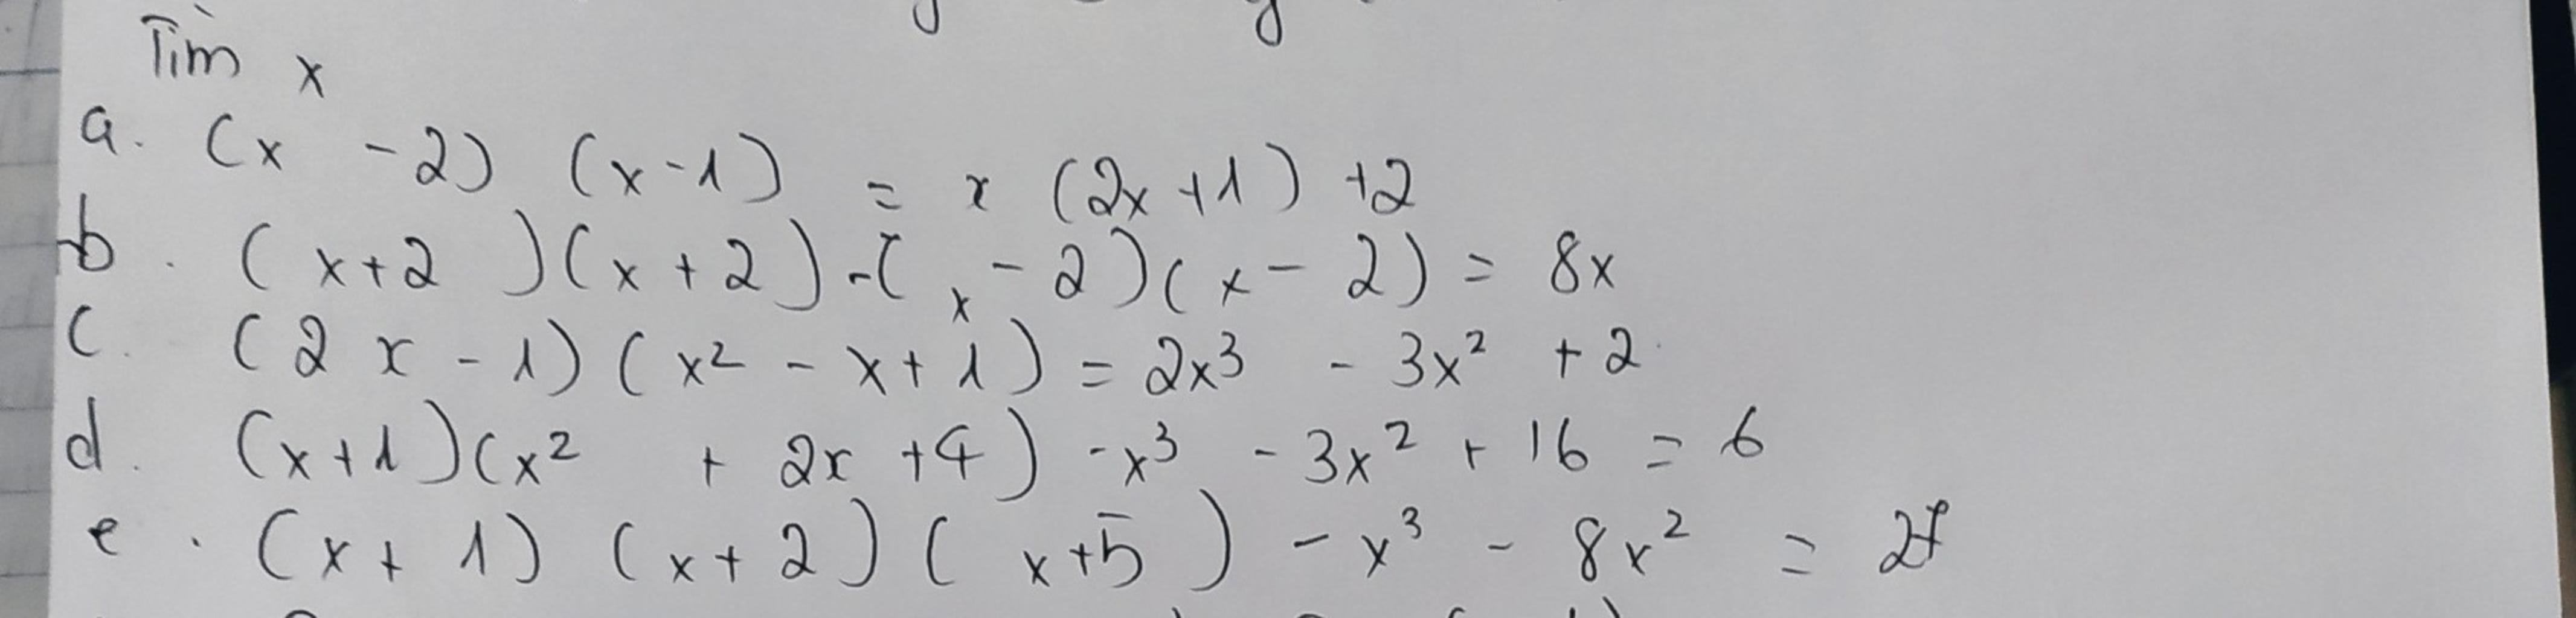 Tìm x
a. (x - 2) (x - 1) = x (2x + 1) + 2
b. (x + 2)(x + 2) - (x - 2)(x - 2) = 8x
c. (2x - 1)(x² - x + 1) = 2x³ - 3x² + 2
d. (x + 1)(x² + 2x + 4) - x³ - 3x² + 16 = 6
e. (x + 1) (x + 2)(x + 5) - x³ - 8x² = 27